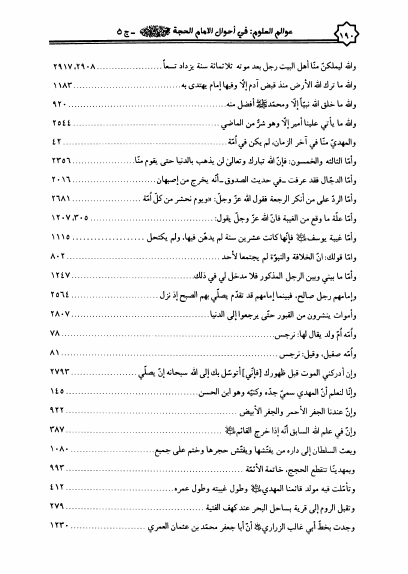 ١٩٠ عوالم العلوم: في أحوال الإمام الحجة ـ ج ٥
والله ليملكنّ منّا أهل البيت رجل بعد موته ثلاثمائة سنة يزداد تسعاً ٢٩٠٨، ٢٩١٧
والله ما ترك الله الأرض منذ قبض آدم إلّا وفيها إمام يهتدى به ١١٨٣
والله ما خلق الله نبيّاً إلّا ومحمّد ﷺ أفضل منه ٩٢٠
والله ما يأتي علينا أمير إلّا وهو شرّ من الماضي ٢٥٤٤
والمهديّ منّا في آخر الزمان، لم يكن في أمّة ٤٢
وأمّا الثالثه والخمسون: فإنّ الله تبارك وتعالى لن يذهب بالدنيا حتى يقوم منّا ٢٣٥٦
وأمّا الدجّال فقد عرفت ـ في حديث الصدوق ـ أنّه يخرج من إصبهان ٢٠١٦
وأمّا الردّ على من أنكر الرجعة فقول الله عزّ وجلّ: «ويوم نحشر من كلّ أمّة ٢٦٨١
وأمّا علّة ما وقع من الغيبة فانّ الله عزّ وجلّ يقول: ٣٠٥، ١٢٠٧
وأمّا غيبة يوسف ﷺ فإنّها كانت عشرين سنة لم يدهّن فيها، ولم يكتحل ١١١٥
وامّا قولك: انّ الخلافة والنبوّة لم يجتمعا لأحد ٨٠٢
وأمّا ما بيني وبين الرجل المذكور فلا مدخل لي في ذلك ١٢٤٧
وإمامهم رجل صالح، فبينما إمامهم قد تقدّم يصلّي بهم الصبح إذ نزل ٢٥٦٤
وأموات ينشرون من القبور حتّى يرجعوا إلى الدنيا ٢٨٠٧
وأمّه أمّ ولد يقال لها: نرجس ٧٨
وأمّه صقيل، وقيل: نرجس ٨١
وإن أدركني الموت قبل ظهورك [فإنّي] أتوسّل بك إلى الله سبحانه إنّ يصلّي ٢٧٩٣
وإنّا لنعلم أنّ المهدي سميّ جدّه وكنيّه وهو ابن الحسن ١٤٥
وإنّ عندنا الجفر الأحمر والجفر الأبيض ٩٢٢
وإنّ في علم الله السابق أنّه إذا خرج القائم ٣٨٧
وبعث السلطان إلى داره من يفتّشها ويفتّش حجرها وختم على جميع ١٠٨٠
وبمهدينا تنقطع الحجج، خاتمة الأئمّة ٩٩٣
وتأمّلت فيه مولد قائمنا المهدي وطول غيبته وطول عمره ٤١٢
وتقبل الروم إلى قرية بساحل البحر عند كهف الفتية ٢٧٩
وجدت بخطّ أبي غالب الزراري أنّ أبا جعفر محمّد بن عثمان العمري ١٢٣٠